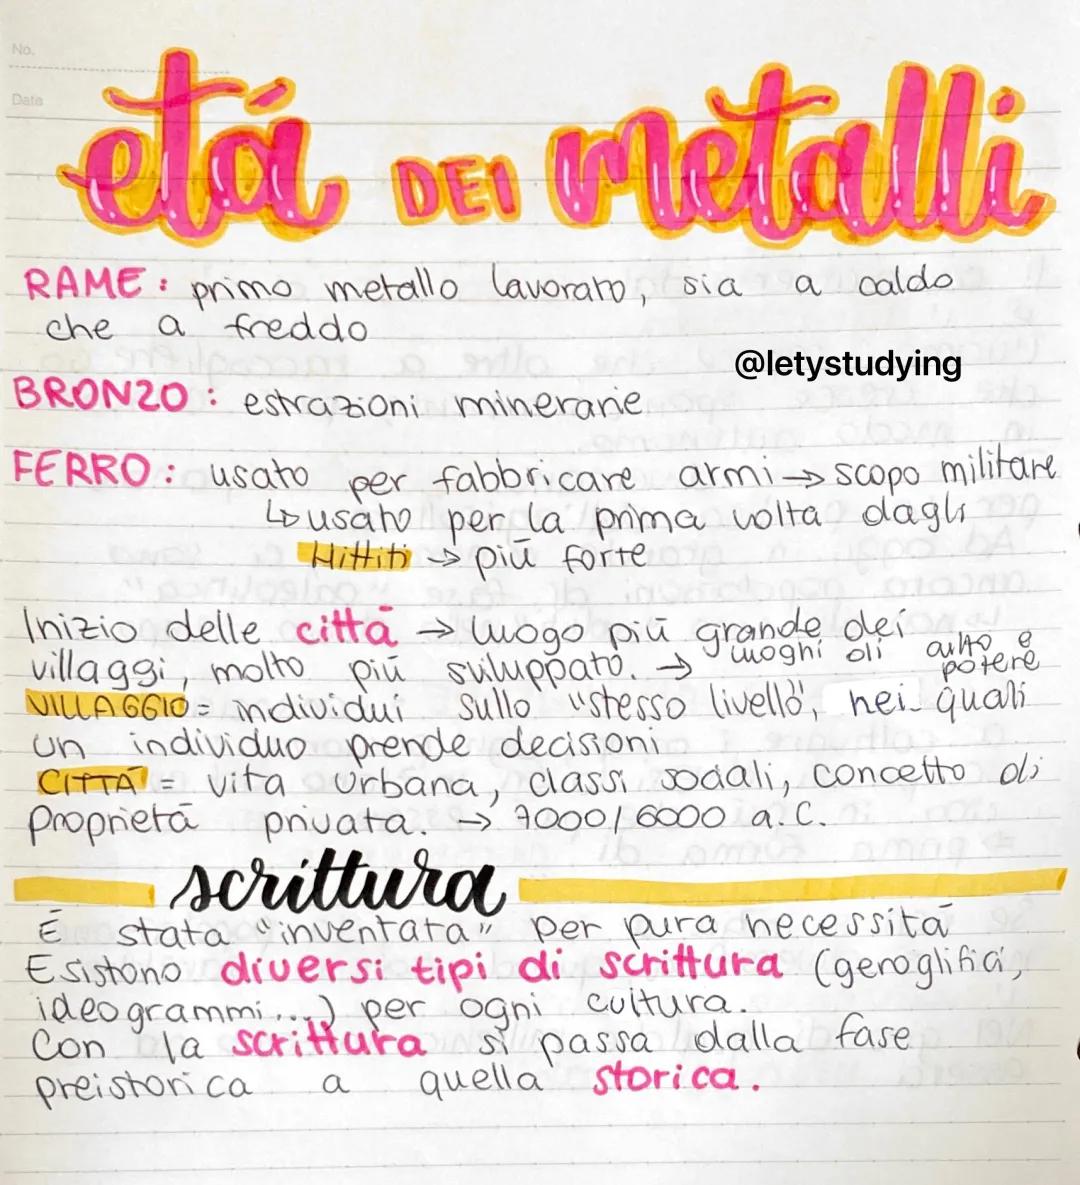 No.
Date
etá DEI metalli
RAME: primo metallo lavorato, sia a caldo
che a freddo
@letystudying
BRONZO: estrazioni minerarie
FERRO: usato per fabbricare armi → scopo militare
↳ usato per la prima volta dagli
Hittiti → più forte
Inizio delle città → luogo più grande dei
villaggi, molto più sviluppato. → luoghi di culto e
potere
VILLAGGIO = individui sullo "stesso livello", nei quali
un individuo prende decisioni
CITTÀ = vita urbana, classi sociali, concetto di
proprietà privata. → 7000/6000 a.C.
scrittura
É stata "inventata" per pura necessità
Esistono diversi tipi di scrittura (geroglifici,
ideogrammi...) per ogni cultura.
Con la scrittura si passa dalla fase
preistorica a quella storica.